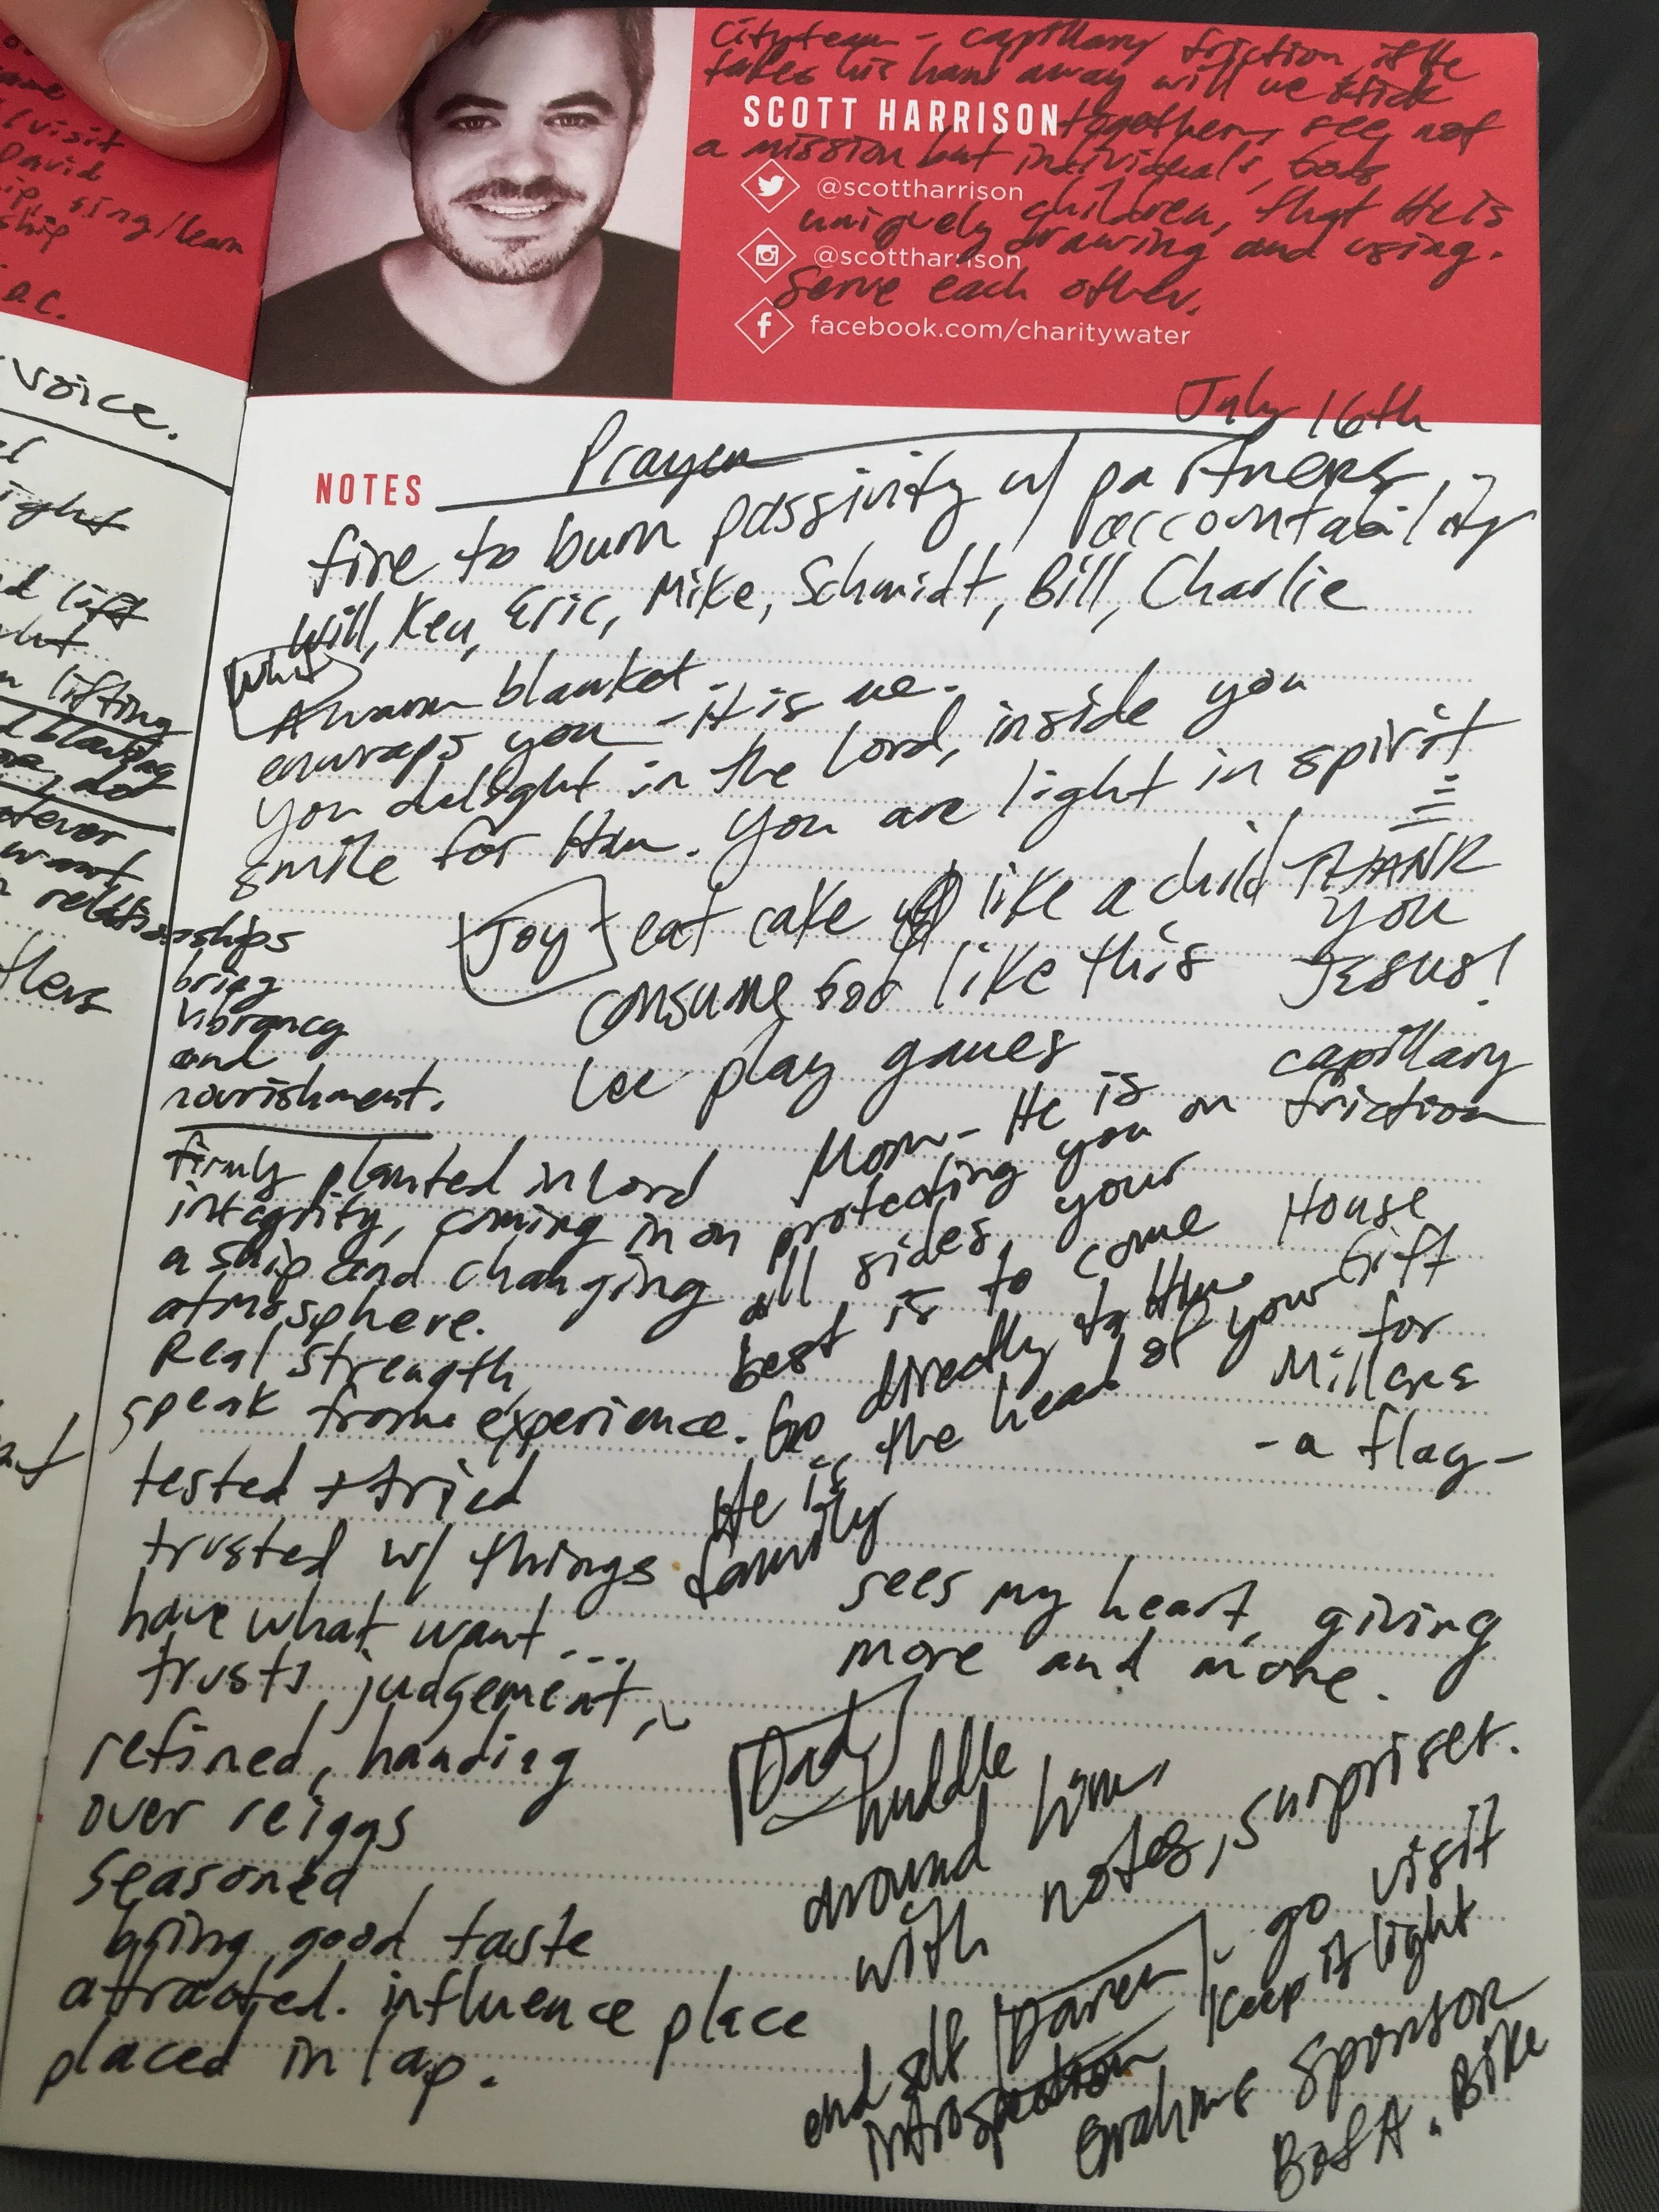 Cityteam - capillary friction, if He
takes his hand away will we stick
SCOTT HARRISON together, see not
a mission but individuals, Gods
@scottharrison
uniquely children, that He is
drawing and using.
@scottharrison
Serve each other.
facebook.com/charitywater
visit
David
sing/learn
ship
voice.
July 16th
NOTES Prayer
fire to burn passivity w/ partners,
accountability
Will, Kev, Eric, Mike, Schmidt, Bill, Charlie
Whit
A warm blanket -
enwraps you - it is me.
you delight in the Lord, inside you
smile for Him. You are light in spirit
Joy eat cake like a child
consume God like this
we play games
THANK
YOU
JESUS!
capillary
friction
lift
lifting
blanking
do
want
relationships
bring
vibrancy
and
nourishment.
firmly planted in Lord
integrity, coming in on
a ship and changing
atmosphere.
Real strength,
speak from experience.
tested + tried
trusted w/ things
have what want...
trusts, judgement,
refined, handing
over reiggs
seasoned
bring good taste
attracted. influence place
placed in lap.
Mom - He is
protecting you on
all sides, your
best is to come
Go directly to Him
He is the head of your
family
House
Gift
for
Millers
- a flag -
sees my heart, giving
more and more.
Dad
huddle
around him,
with notes, surprises.
Daren - go visit
end self introspection keep it light
Grahms Sponsor
BofA. Bike